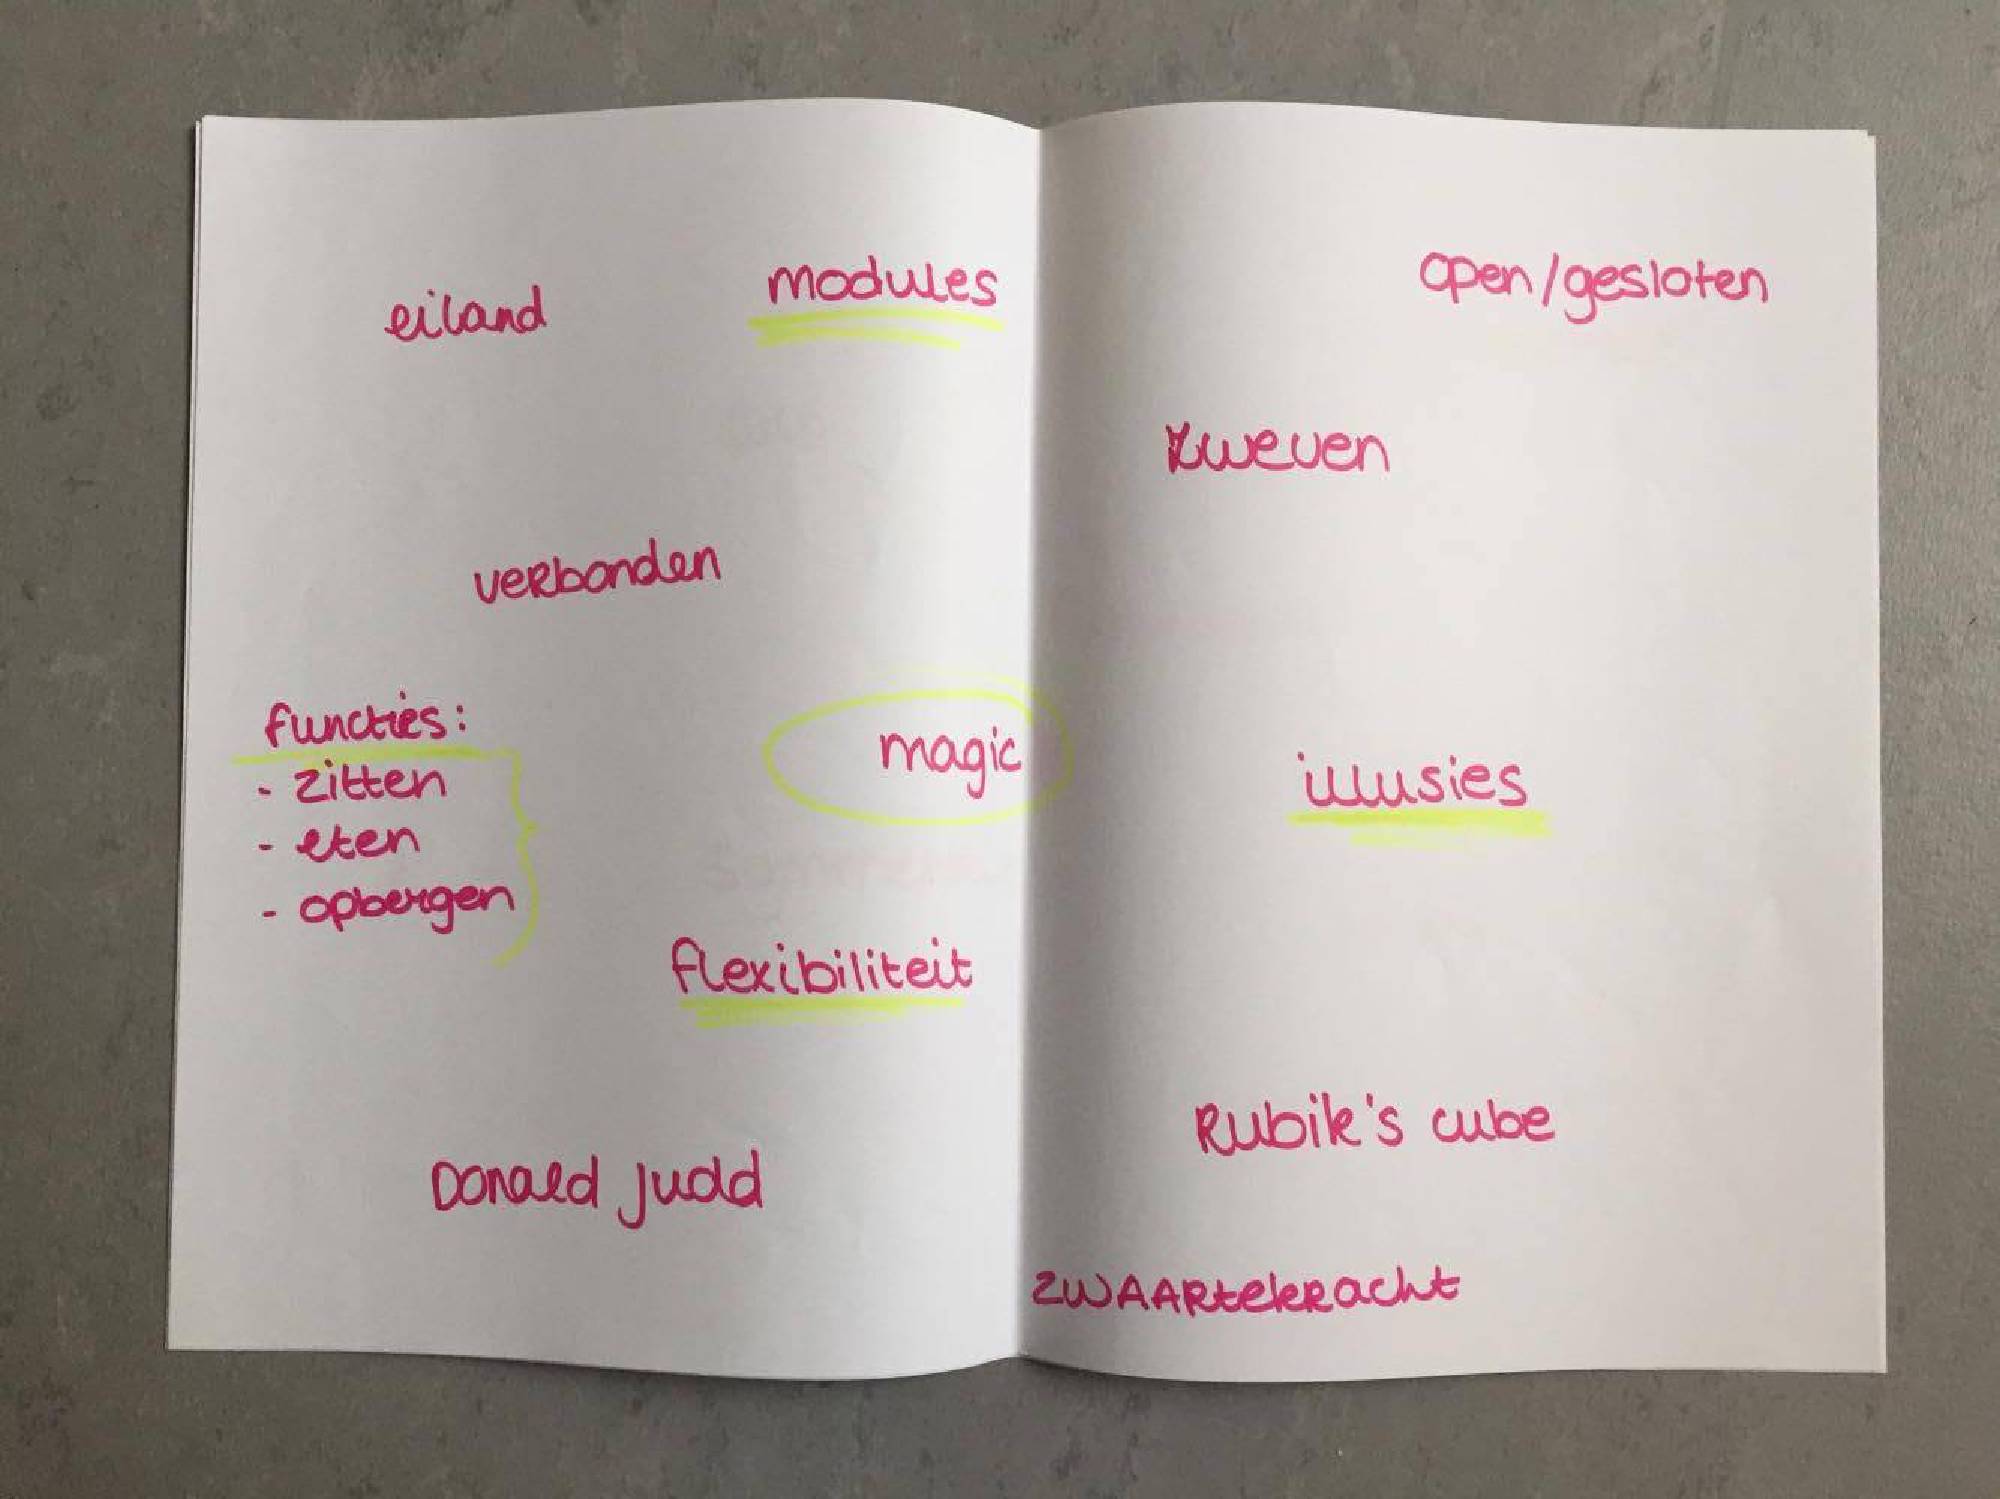 eiland
modules
verbonden
functies:
- zitten
- eten
- opbergen
magic
flexibiliteit
Donald Judd
open/gesloten
zweven
illusies
Rubik's cube
zwaartekracht